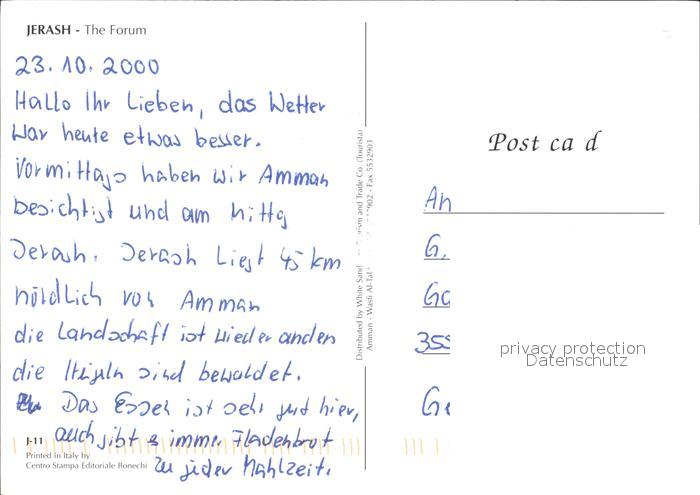 JERASH - The Forum
23.10.2000
Hallo Ihr Lieben, das Wetter
war heute etwas besser.
Vormittags haben wir Amman
besichtigt und am Mittg
Jerash. Jerash liegt 45 km
nördlich von Amman
die Landschaft ist wieder anders
die Hügeln sind bewaldet.
Das Essen ist sehr gut hier,
auch gibt es immer Fladenbrot
zu jeder Mahlzeit.
J-11
Printed in Italy by
Centro Stampa Editoriale Bonechi
Distributed by White Sand Tourism and Trade Co. (Tourista)
Amman - Wasfi Al-Tal 902 - Fax 5532903
Post ca d
An
G.
Ga
355
Ge
privacy protection
Datenschutz